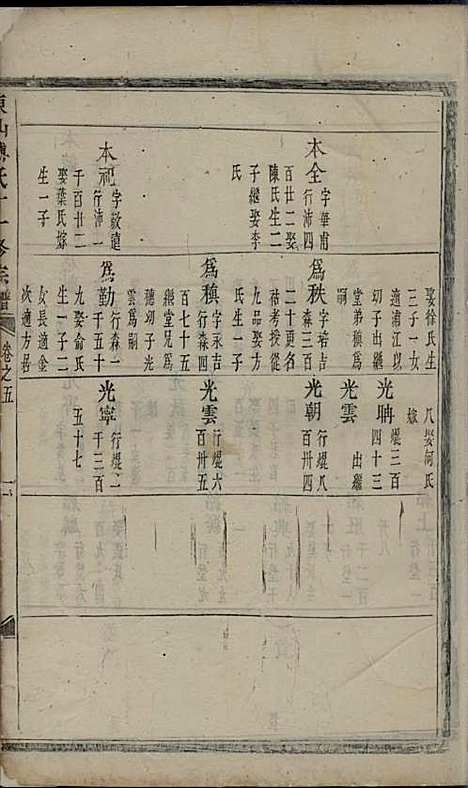 本全
字華甫
行沛四
百廿二娶
陳氏生二
子繼娶李
氏
本祀
字敬遠
行沛一
千百廿二
娶葉氏嫁
生一子
娶徐氏生
三子一女
適浦江以
幼子出繼
堂弟稹為
嗣
為秩
字培吉
森三百
二十更名
祜考授從
九品娶方
氏生一子
為稹
字永吉
行森四
百七十五
繼堂兄為
穗幼子光
雲為嗣
為勤
行森一
千五十
九娶俞氏
生一子二
女長適金
次適方居
八娶何氏
嫁
光聃
焜三百
四十三
光雲
出繼
光朝
行焜八
百卅四
光雲
行焜六
百卅五
光寧
行焜一
千三百
五十七
東山傅氏十一修宗譜
卷之五